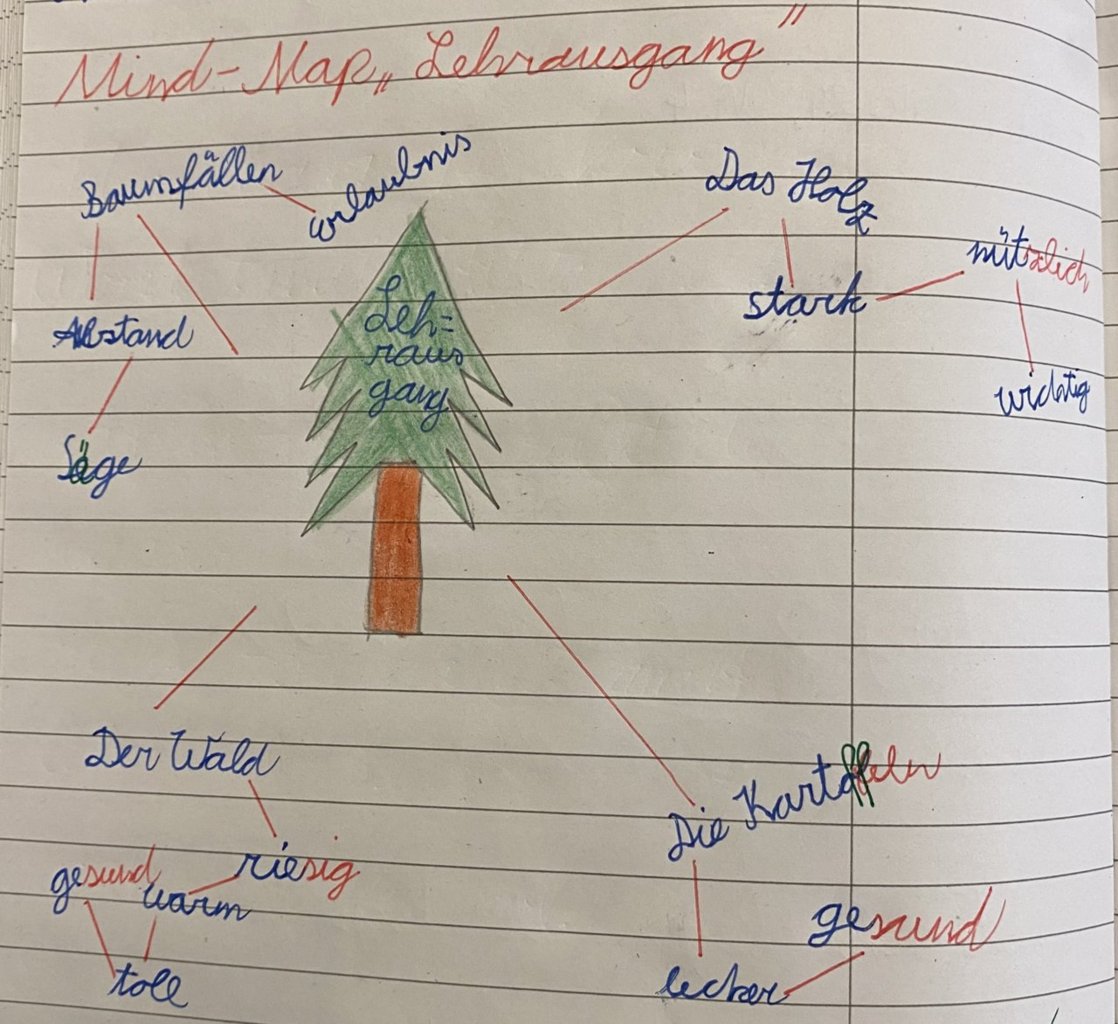 Mind-Map „Lehrausgang"
Baumfällen
Erlaubnis
Das Holz
nützlich
stark
Abstand
wichtig
Säge
Leh=
raus
gang
Der Wald
Die Kartoffeln
riesig
gesund
warm
gesund
toll
lecker